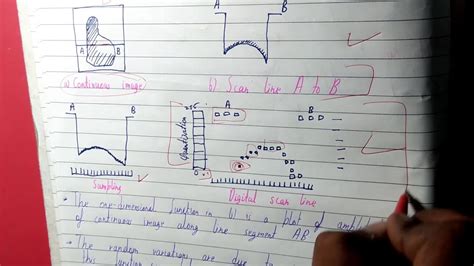 A B
A B
a) Continuous image
b) Scan line A to B
A B
255
A
B
Quantization
0
Sampling
Digital scan line
• The one-dimensional function in b) is a plot of
of continuous image along line segment AB
• The random variations are due to
this function